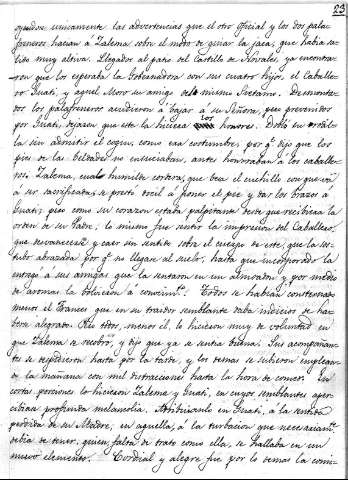 23
oyendose unicamente las advertencias que el otro oficial y los dos pala-
freneros hacian á Zalema sobre el modo de guiar la jaca, que habia sa-
lido muy altiva. Llegados al patio del Castillo de Novales, ya encontra-
ron que los esperaba la Gobernadora con sus cuatro hijos, el Caballe-
ro Guati, y aquel Moro su amigo del mismo Serrano. Desmonta-
dos los palafreneros acudieron á bajar á su Señora, pero prevenidos
por Guati, dejaron que este la hiciese los honores. Dobló su rodi-
lla sin admitir el cogin, como era costumbre, por q.e dijo que los
pies de las Beldades no ensuciaban, antes honoraban á los caballe-
ros. Zalema, cual humilde cordera, que vea el cuchillo con que va
á ser sacrificada, se prestó docil á poner el pie y dar los brazos á
Guati; pero como su corazon estaba palpitante desde que recibiera la
orden de su Padre, lo mismo fue sentir la impresion del Caballero,
que desvanecerse y caer sin sentido sobre el cuerpo de este, que la es-
tubo abrazada por q.e no llegase al suelo, hasta que incorporado la
entregó á sus amigas que la sentaron en un almoadon, y por medio
de aromas la bolvieron á conocim.to Todos se habian consternado
menos el Frances que en su traidor semblante daba indicios de ha-
verse alegrado. Los otros, menos él, lo hicieron muy de voluntad en
que Zalema se recobró, y dijo que ya se sentia buena. Sus acompañan-
tes se despidieron hasta por la tarde, y los demas se subieron emplean-
do la mañana con mil distracciones hasta la hora de comer. En
cortas porciones lo hicieron Zalema y Guati, en cuyos semblantes aper-
cibian profunda melancolia. Atribuianlo en Guati, á la sentida
perdida de su Madre, en aquella, á la turbacion que necesariam.te
debia de tener, quien falta de trato como ella, se hallaba en un
nuevo elemento. Cordial y alegre fue por lo demas la comi-